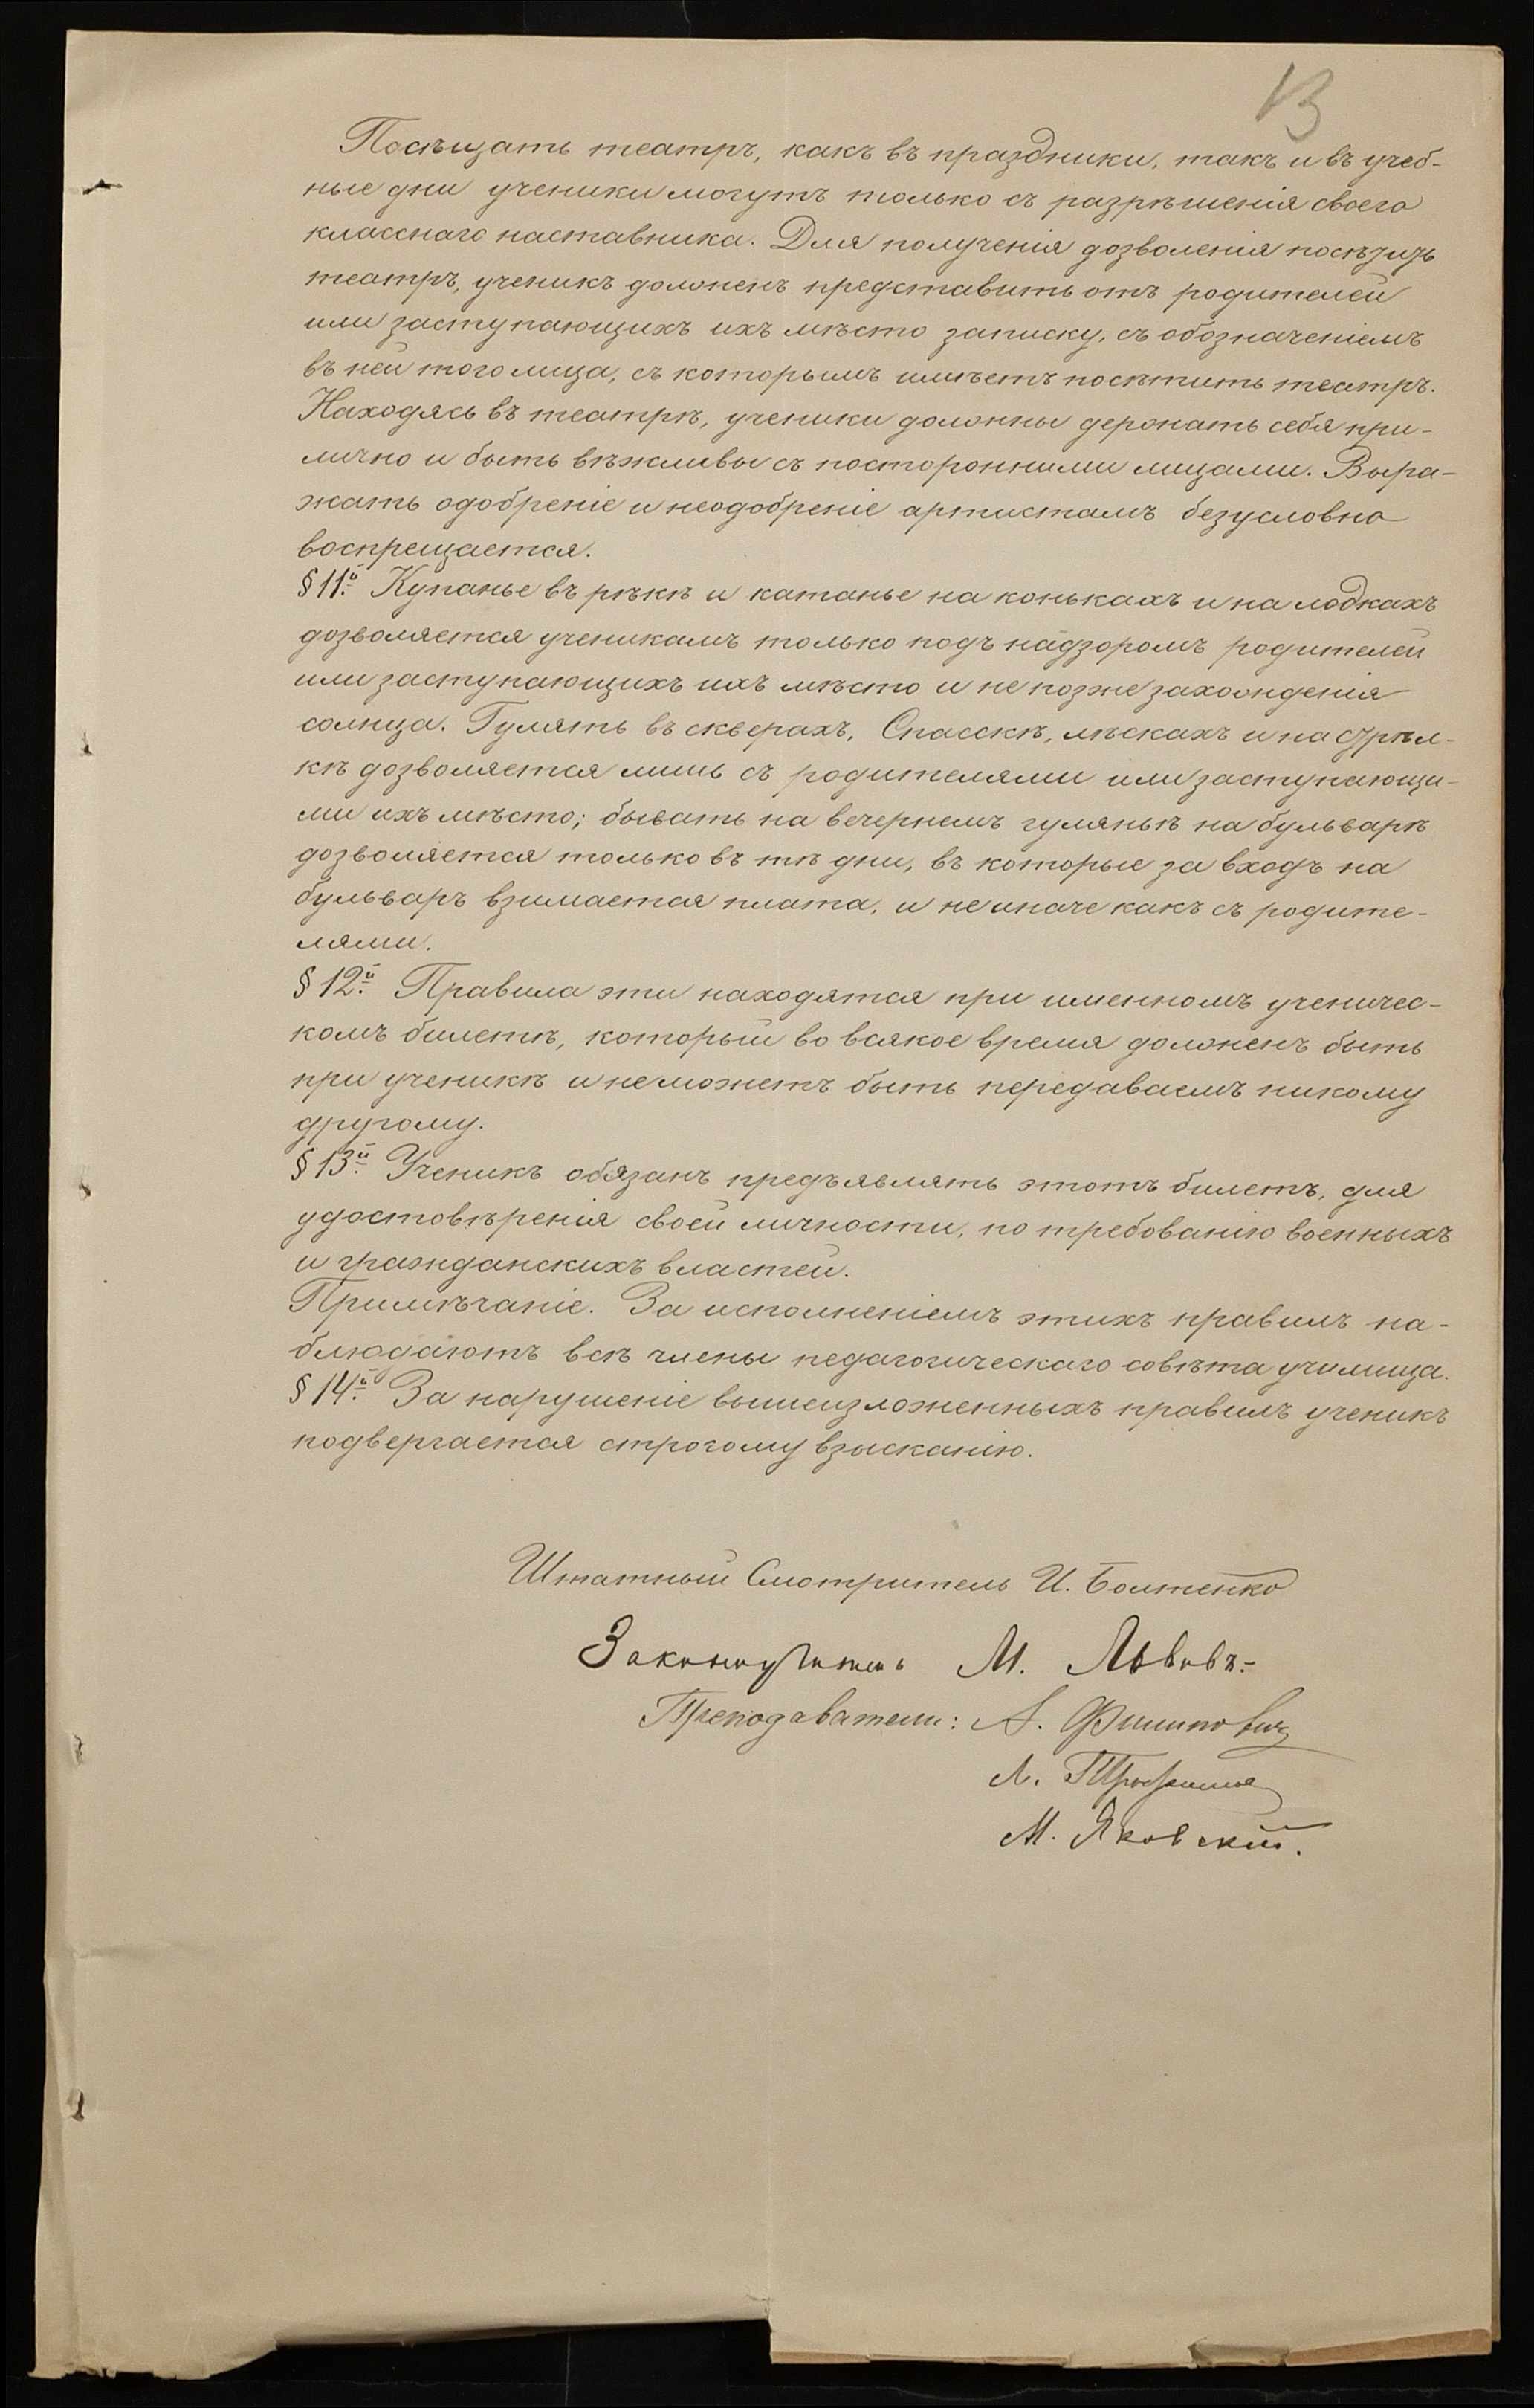 13
Посѣщать театръ, какъ въ праздники, такъ и въ учеб-
ные дни ученики могутъ только съ разрѣшенія своего
класснаго наставника. Для полученія дозволенія посѣтить
театръ, ученикъ долженъ представить отъ родителей
или заступающихъ ихъ мѣсто записку, съ обозначеніемъ
въ ней того лица, съ которымъ имѣетъ посѣтить театръ.
Находясь въ театрѣ, ученики должны держать себя при-
лично и быть вѣжливы съ посторонними лицами. Выра-
жать одобреніе и неодобреніе артистамъ безусловно
воспрещается.
§ 11й. Купанье въ рѣкѣ и катанье на конькахъ и на лодкахъ
дозволяется ученикамъ только подъ надзоромъ родителей
или заступающихъ ихъ мѣсто и не позже захожденія
солнца. Гулять въ скверахъ, Спасскѣ, лѣскахъ и на стрѣл-
кѣ дозволяется лишь съ родителями или заступающи-
ми ихъ мѣсто; бывать на вечернемъ гуляньѣ на бульварѣ
дозволяется только въ тѣ дни, въ которые за входъ на
бульваръ взимается плата, и не иначе какъ съ родите-
лями.
§ 12й. Правила эти находятся при именномъ ученичес-
комъ билетѣ, который во всякое время долженъ быть
при ученикѣ и не можетъ быть передаваемъ никому
другому.
§ 13й. Ученикъ обязанъ предъявлять этотъ билетъ, для
удостовѣренія своей личности, по требованію военныхъ
и гражданскихъ властей.
Примѣчаніе. За исполненіемъ этихъ правилъ на-
блюдаютъ всѣ члены педагогическаго совѣта училища.
§ 14й. За нарушеніе вышеизложенныхъ правилъ ученикъ
подвергается строгому взысканію.
Штатный Смотритель И. Болтенко
Законоучитель М. Львовъ.
Преподаватели: А. Филиповичъ
Л.
М. Яковскій.